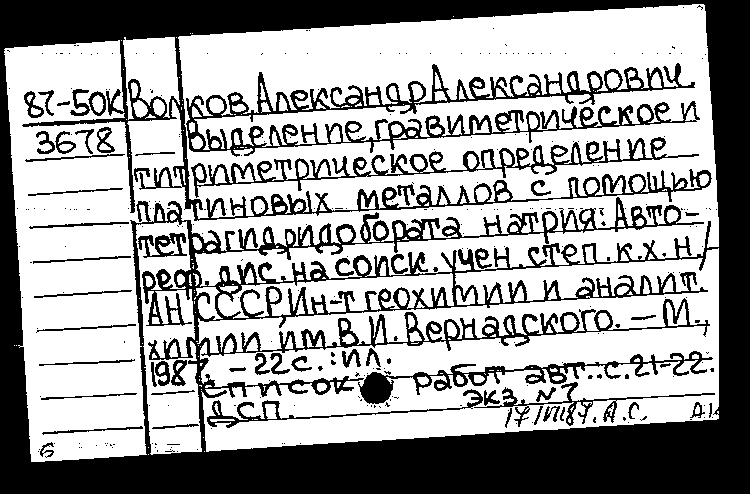 87-50К Волков, Александр Александрович.
3678 Выделение, гравиметрическое и
титриметрическое определение
платиновых металлов с помощью
тетрагидридобората натрия: Авто-
реф. дис. на соиск. учен. степ. к.х.н./
АН СССР, Ин-т геохимии и аналит.
химии им. В.И. Вернадского. — М.,
1987. – 22 с. : ил.
Список работ авт.: с. 21-22.
ДСП. экз. №7
А.С.
б